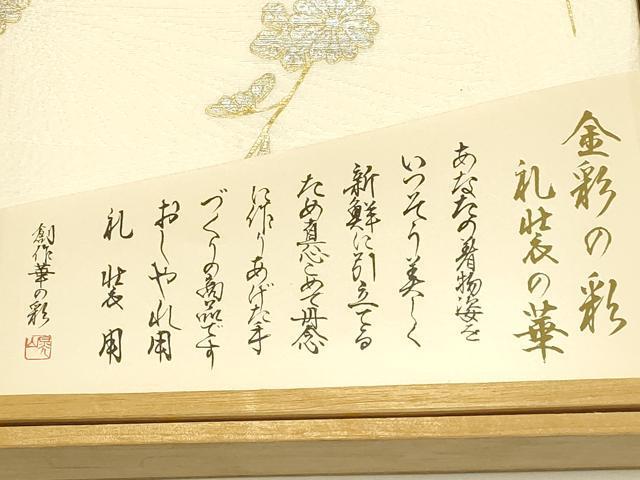 金彩の彩
礼装の華
あなたの着物姿を
いっそう美しく
新鮮に引立てる
ため真心こめて丹念
に作りあげた手
づくりの商品です
おしゃれ用
礼装用
創作華の彩